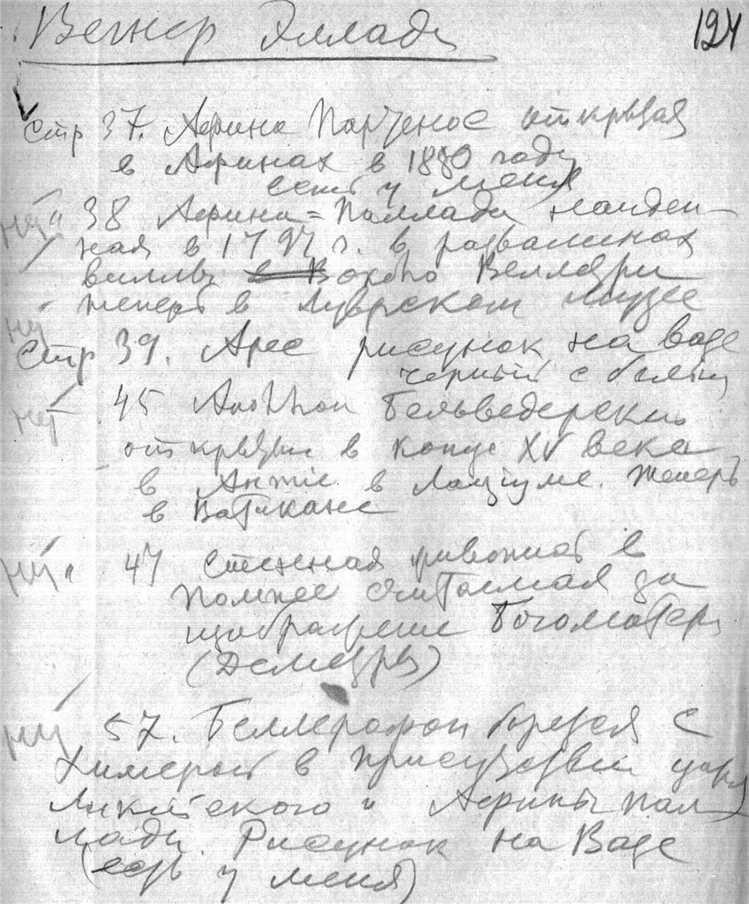 Вегнер Эллада
124
Стр 37. Афина Парфенос открытая
в Афинах в 1880 году
есть у меня
нет 38 Афина-Паллада найден-
ная в 1797 г. в развалинах
виллы в В около Веллетри
теперь в Луврском музее
нет
Стр 39. Арес рисунок на вазе
черный с белым
нет 45 Аполлон Бельведерский
открытый в конце XV века
в Антие в Лациуме. теперь
в Ватикане
нет 47 Стенная живопись в
Помпее считаемая за
изображение Богоматери
(Деметры)
нет 57. Беллерофон борется с
Химерой в присутствии царя
Ликийского и Афины Пал
лады. Рисунок на Вазе
(есть у меня)